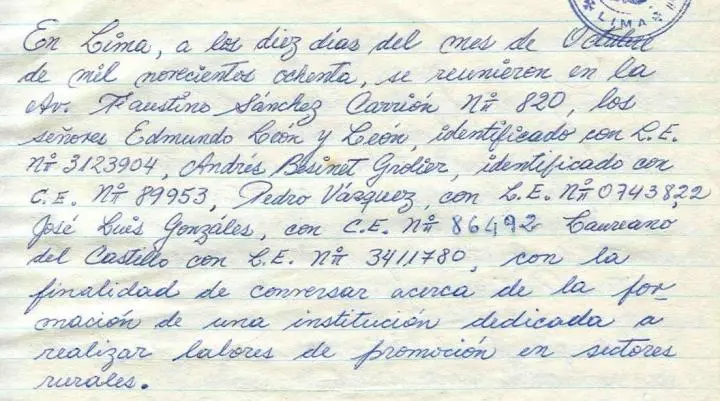 LIMA
En Lima, a los diez días del mes de Octubre
de mil novecientos ochenta, se reunieron en la
Av. Faustino Sánchez Carrión Nº 820, los
señores Edmundo León y León, identificado con L.E.
Nº 3123904, Andrés Besinet Grolier, identificado con
C.E. Nº 89953, Pedro Vázquez, con L.E. Nº 0743822
José Luis Gonzáles, con C.E. Nº 86492 Laureano
del Castillo con L.E. Nº 3411780, con la
finalidad de conversar acerca de la for-
mación de una institución dedicada a
realizar labores de promoción en sectores
rurales.